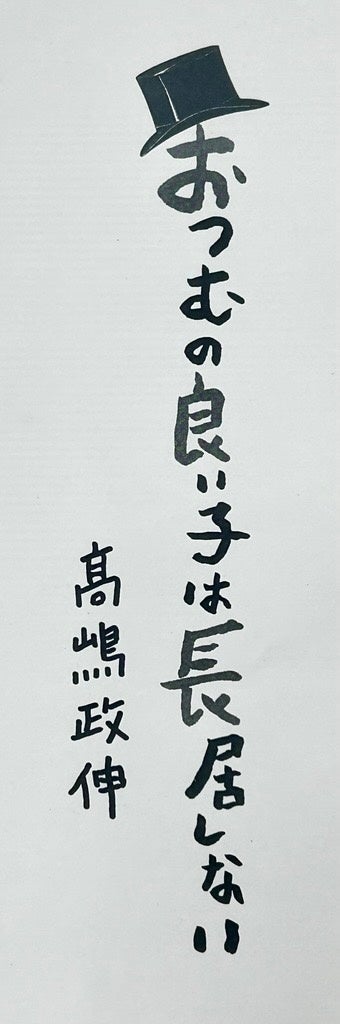 おつむの良い子は長居しない
髙嶋政伸